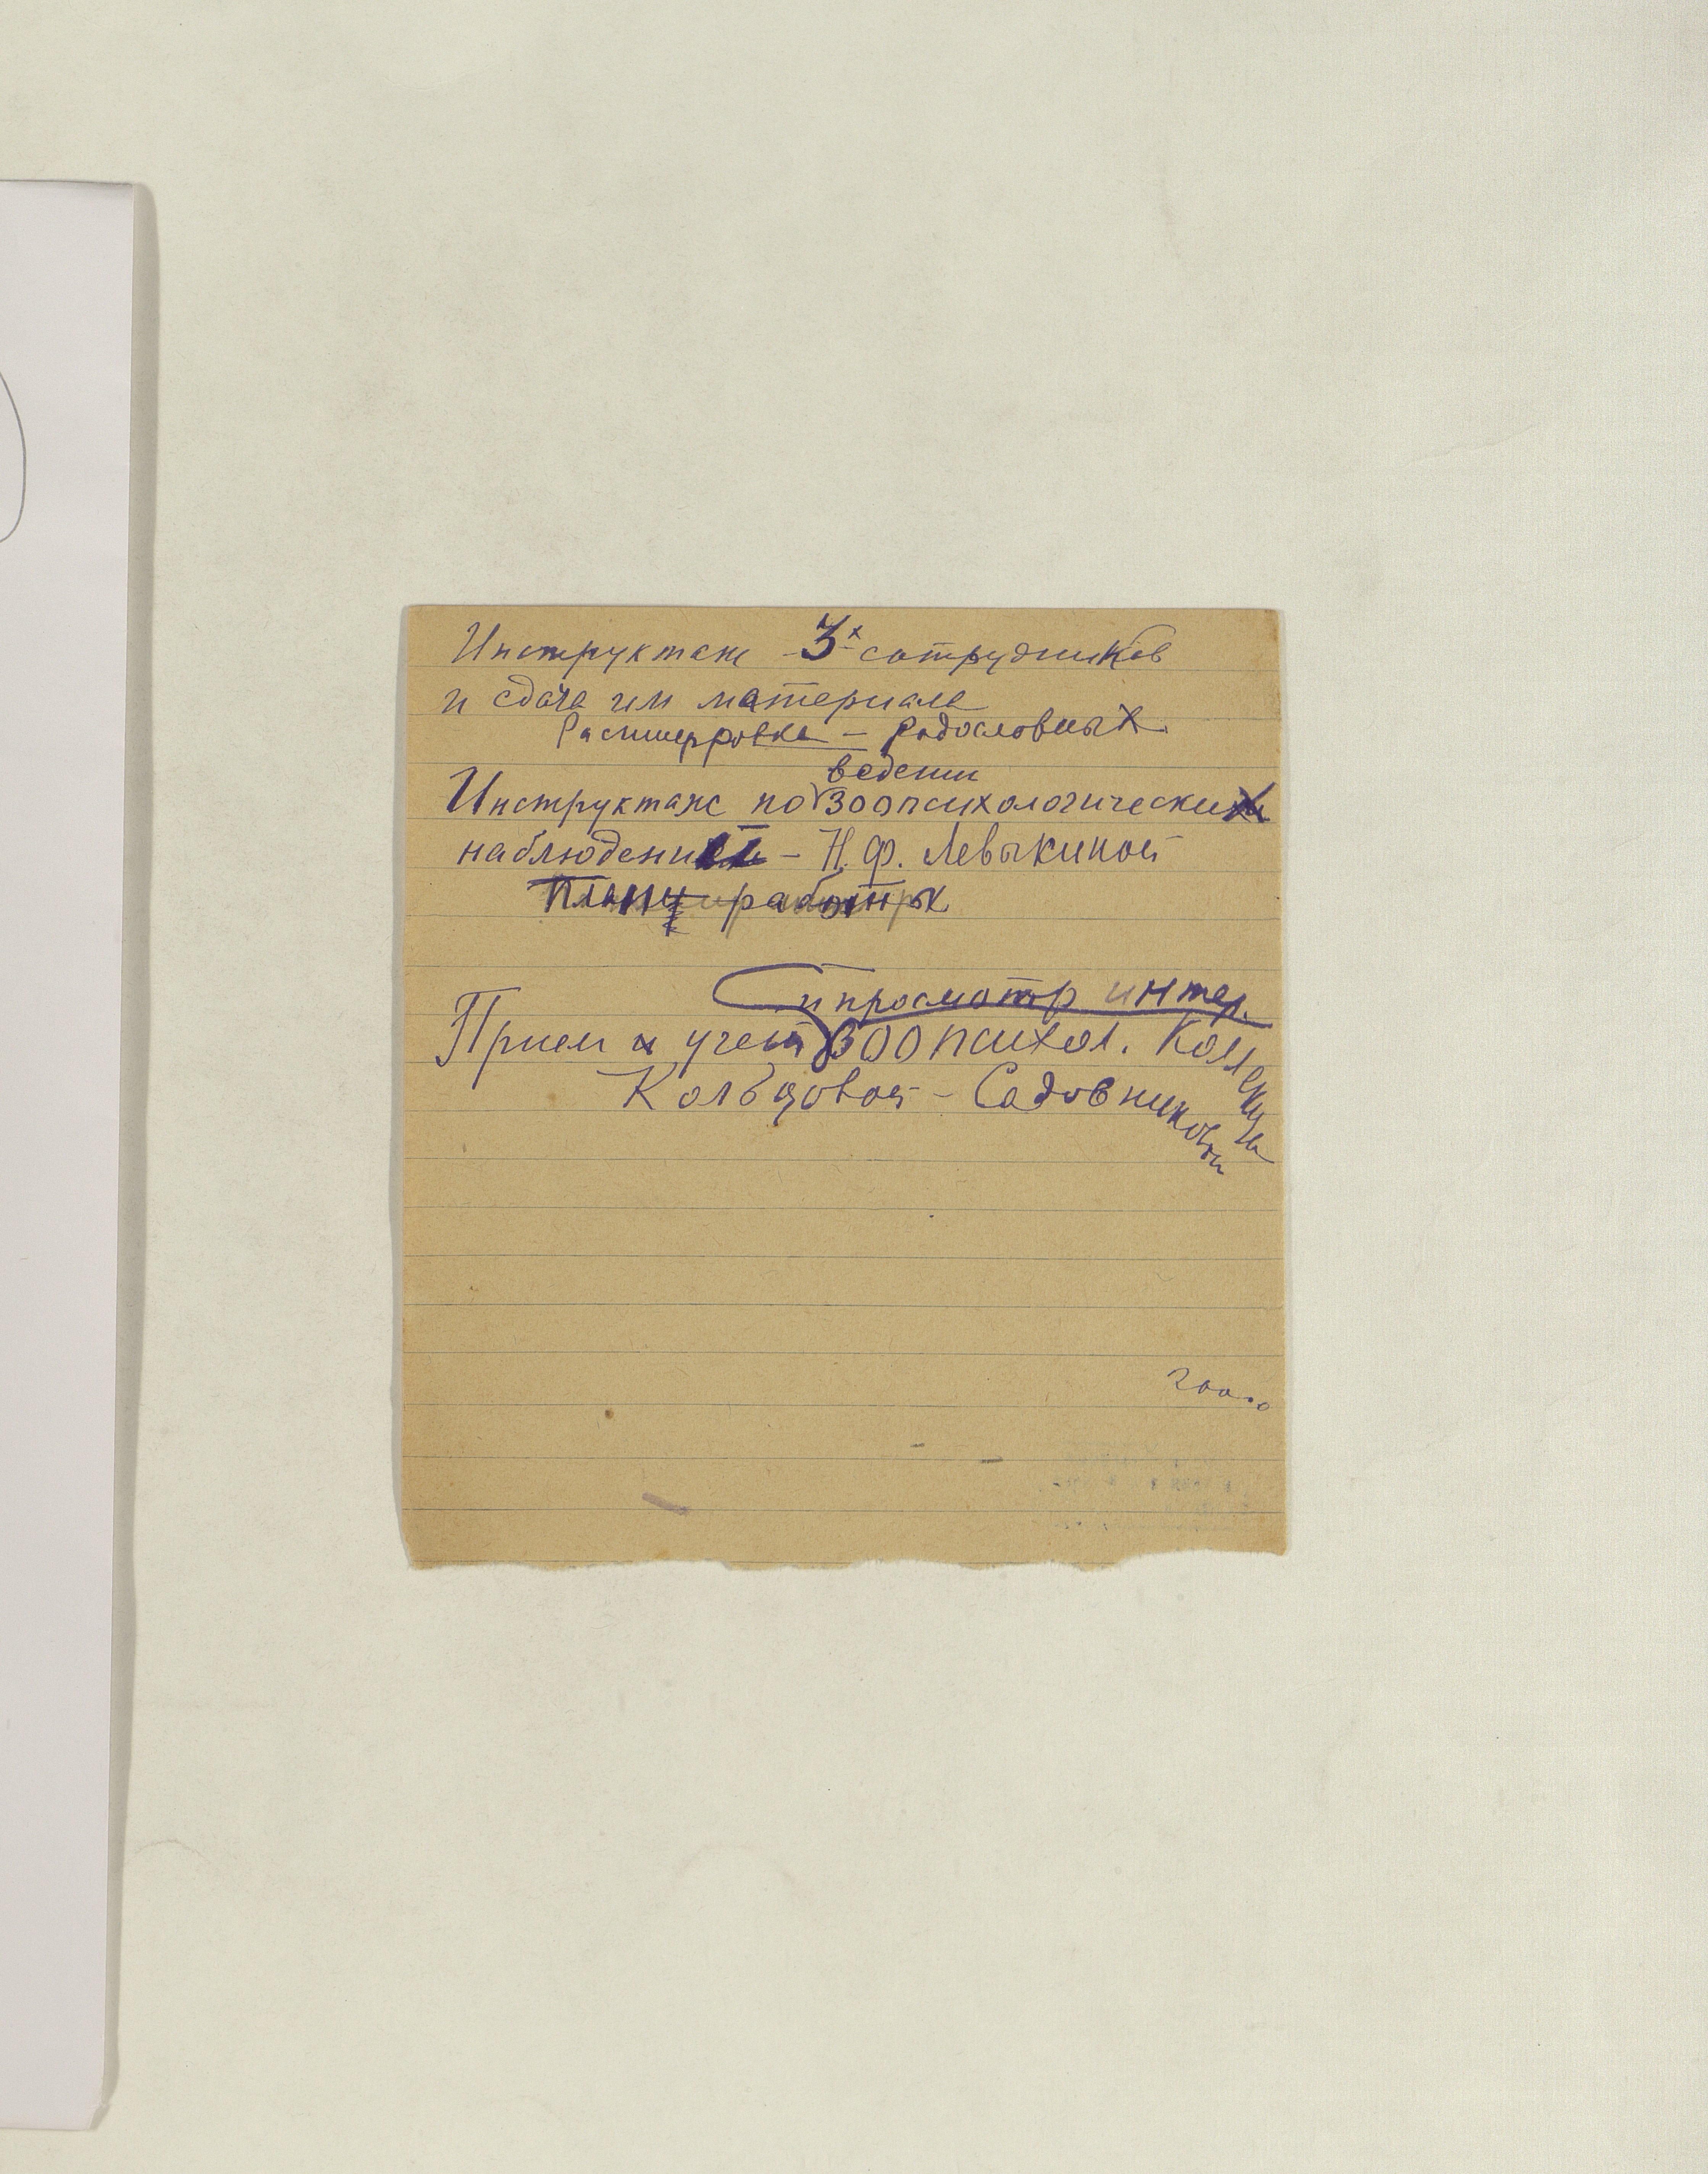 Инструктаж - 3х сотрудников
и сдача им материала
Расшифровка - родословных
ведении
Инструктаж по зоопсихологических
наблюдений - Н.Ф. Левыкиной
План работы
и просмотр интер.
Прием и учет зоопсихол. Коллекции
Кольцовой - Садовниковой